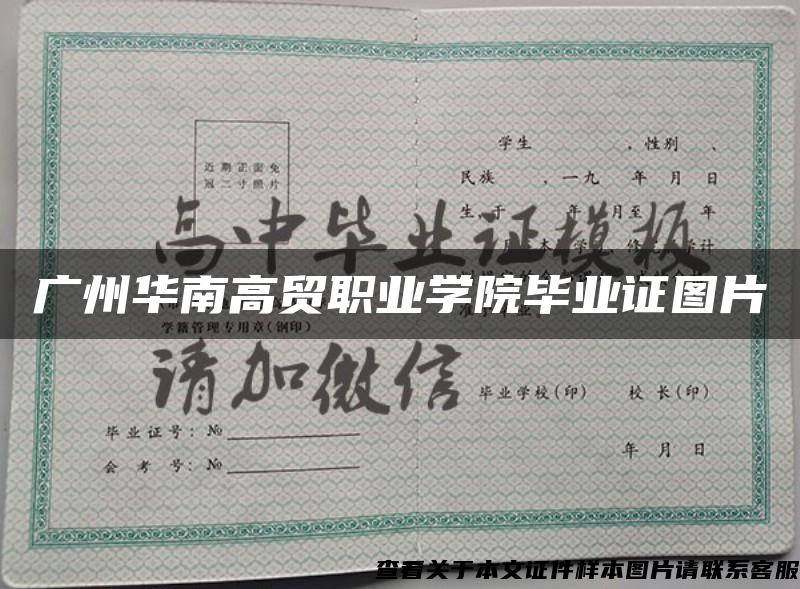 近期正面免
冠二寸照片
学籍管理专用章(钢印)
毕业证号：№
会考号：№
学生 ，性别 、
民族 ，一九 年 月 日
生，于 年 月至 年
毕业学校(印) 校长(印)
年 月 日
高中毕业证模板
广州华南高贸职业学院毕业证图片
请加微信
查看关于本文证件样本图片请联系客服